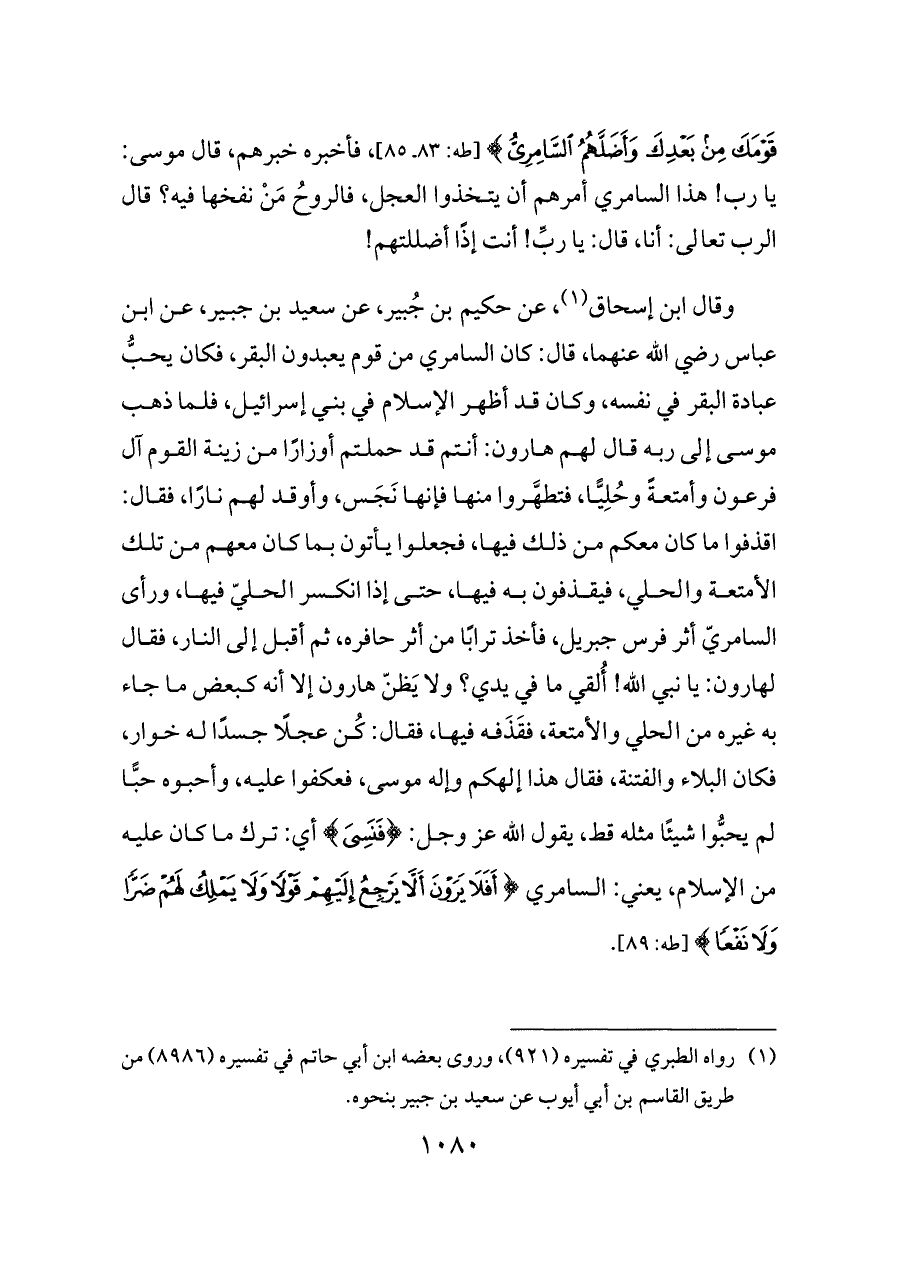 قَوْمَكَ مِنۢ بَعْدِكَ وَأَضَلَّهُمُ ٱلسَّامِرِىُّ ﴾ [طه: ٨٣ـ ٨٥]، فأخبره خبرهم، قال موسى:
يا رب! هذا السامري أمرهم أن يتخذوا العجل، فالروحُ مَنْ نفخها فيه؟ قال
الرب تعالى: أنا، قال: يا ربِّ! أنت إذًا أضللتهم!
وقال ابن إسحاق(١)، عن حكيم بن جُبير، عن سعيد بن جبير، عن ابن
عباس رضي الله عنهما، قال: كان السامري من قوم يعبدون البقر، فكان يحبُّ
عبادة البقر في نفسه، وكان قد أظهر الإسلام في بني إسرائيل، فلما ذهب
موسى إلى ربه قال لهم هارون: أنتم قد حملتم أوزارًا من زينة القوم آل
فرعون وأمتعةً وحُلِيًّا، فتطهَّروا منها فإنها نَجَس، وأوقد لهم نارًا، فقال:
اقذفوا ما كان معكم من ذلك فيها، فجعلوا يأتون بما كان معهم من تلك
الأمتعة والحلي، فيقذفون به فيها، حتى إذا انكسر الحليّ فيها، ورأى
السامريّ أثر فرس جبريل، فأخذ ترابًا من أثر حافره، ثم أقبل إلى النار، فقال
لهارون: يا نبي الله! أُلقي ما في يدي؟ ولا يَظنّ هارون إلا أنه كبعض ما جاء
به غيره من الحلي والأمتعة، فقَذَفه فيها، فقال: كُن عجلًا جسدًا له خوار،
فكان البلاء والفتنة، فقال هذا إلهكم وإله موسى، فعكفوا عليه، وأحبوه حبًّا
لم يحبُّوا شيئًا مثله قط، يقول الله عز وجل: ﴿فَنَسِىَ﴾ أي: ترك ما كان عليه
من الإسلام، يعني: السامري ﴿ أَفَلَا يَرَوْنَ أَلَّا يَرْجِعُ إِلَيْهِمْ قَوْلًا وَلَا يَمْلِكُ لَهُمْ ضَرًّا
وَلَا نَفْعًا ﴾ [طه: ٨٩].
(١) رواه الطبري في تفسيره (٩٢١)، وروى بعضه ابن أبي حاتم في تفسيره (٨٩٨٦) من
طريق القاسم بن أبي أيوب عن سعيد بن جبير بنحوه.
١٠٨٠